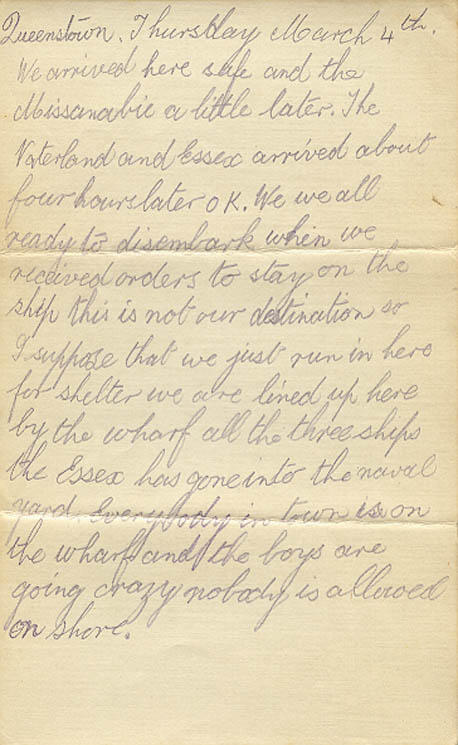 Queenstown. Thursday March 4th.
We arrived here safe and the
Missanabie a little later. The
Vaterland and Essex arrived about
four hours later O K. We we all
ready to disembark when we
received orders to stay on the
ship this is not our destination so
I suppose that we just run in here
for shelter we are lined up here
by the wharf all the three ships
the Essex has gone into the naval
yard. Everybody in town is on
the wharf and the boys are
going crazy nobody is allowed
on shore.